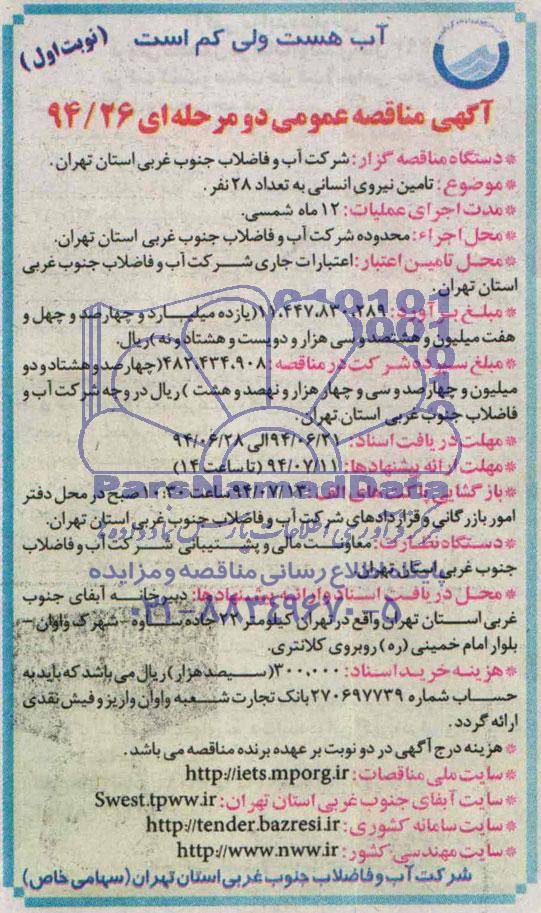 آب هست ولی کم است
(نوبت اول)
آگهی مناقصه عمومی دو مرحله ای ۹۴/۲۶
* دستگاه مناقصه گزار: شرکت آب و فاضلاب جنوب غربی استان تهران.
* موضوع: تامین نیروی انسانی به تعداد ۲۸ نفر.
* مدت اجرای عملیات: ۱۲ ماه شمسی.
* محل اجراء: محدوده شرکت آب و فاضلاب جنوب غربی استان تهران.
* محل تامین اعتبار: اعتبارات جاری شرکت آب و فاضلاب جنوب غربی
استان تهران.
* مبلغ برآورد: ۱۱.۴۴۷.۸۳۰.۲۸۹(یازده میلیارد و چهارصد و چهل و
هفت میلیون و هشتصد و سی هزار و دویست و هشتاد و نه) ریال.
* مبلغ سپرده شرکت در مناقصه: ۴۸۲.۴۳۴.۹۰۸(چهارصد و هشتاد و دو
میلیون و چهارصد و سی و چهار هزار و نهصد و هشت) ریال در وجه شرکت آب و
فاضلاب جنوب غربی استان تهران.
* مهلت دریافت اسناد: ۹۴/۰۶/۲۱ الی ۹۴/۰۶/۲۸
* مهلت ارائه پیشنهادها: ۹۴/۰۷/۱۱ (تا ساعت ۱۴)
* بازگشایی پاکت های الف: ۹۴/۰۷/۱۳ ساعت ۱۰:۳۰ صبح در محل دفتر
امور بازرگانی و قراردادهای شرکت آب و فاضلاب جنوب غربی استان تهران.
* دستگاه نظارت: معاونت مالی و پشتیبانی شرکت آب و فاضلاب
جنوب غربی استان تهران
* محل دریافت اسناد و ارائه پیشنهادها: دبیرخانه آبفای جنوب
غربی استان تهران واقع در تهران کیلومتر ۲۲ جاده ساوه - شهرک واوان -
بلوار امام خمینی (ره) روبروی کلانتری.
* هزینه خرید اسناد: ۳۰۰.۰۰۰(سیصد هزار) ریال می باشد که باید به
حساب شماره ۲۷۰۶۹۷۷۳۹ بانک تجارت شعبه واوان واریز و فیش نقدی
ارائه گردد.
* هزینه درج آگهی در دو نوبت بر عهده برنده مناقصه می باشد.
* سایت ملی مناقصات: http://iets.mporg.ir
* سایت آبفای جنوب غربی استان تهران: Swest.tpww.ir
* سایت سامانه کشوری: http://tender.bazresi.ir
* سایت مهندسی کشور: http://www.nww.ir
شرکت آب و فاضلاب جنوب غربی استان تهران (سهامی خاص)
ParsNamadData
گردآوری اطلاعات پارس نماد داده ها
پایگاه اطلاع رسانی مناقصه و مزایده
۰۲۱-۸۸۳۴۹۶۷۰-۵